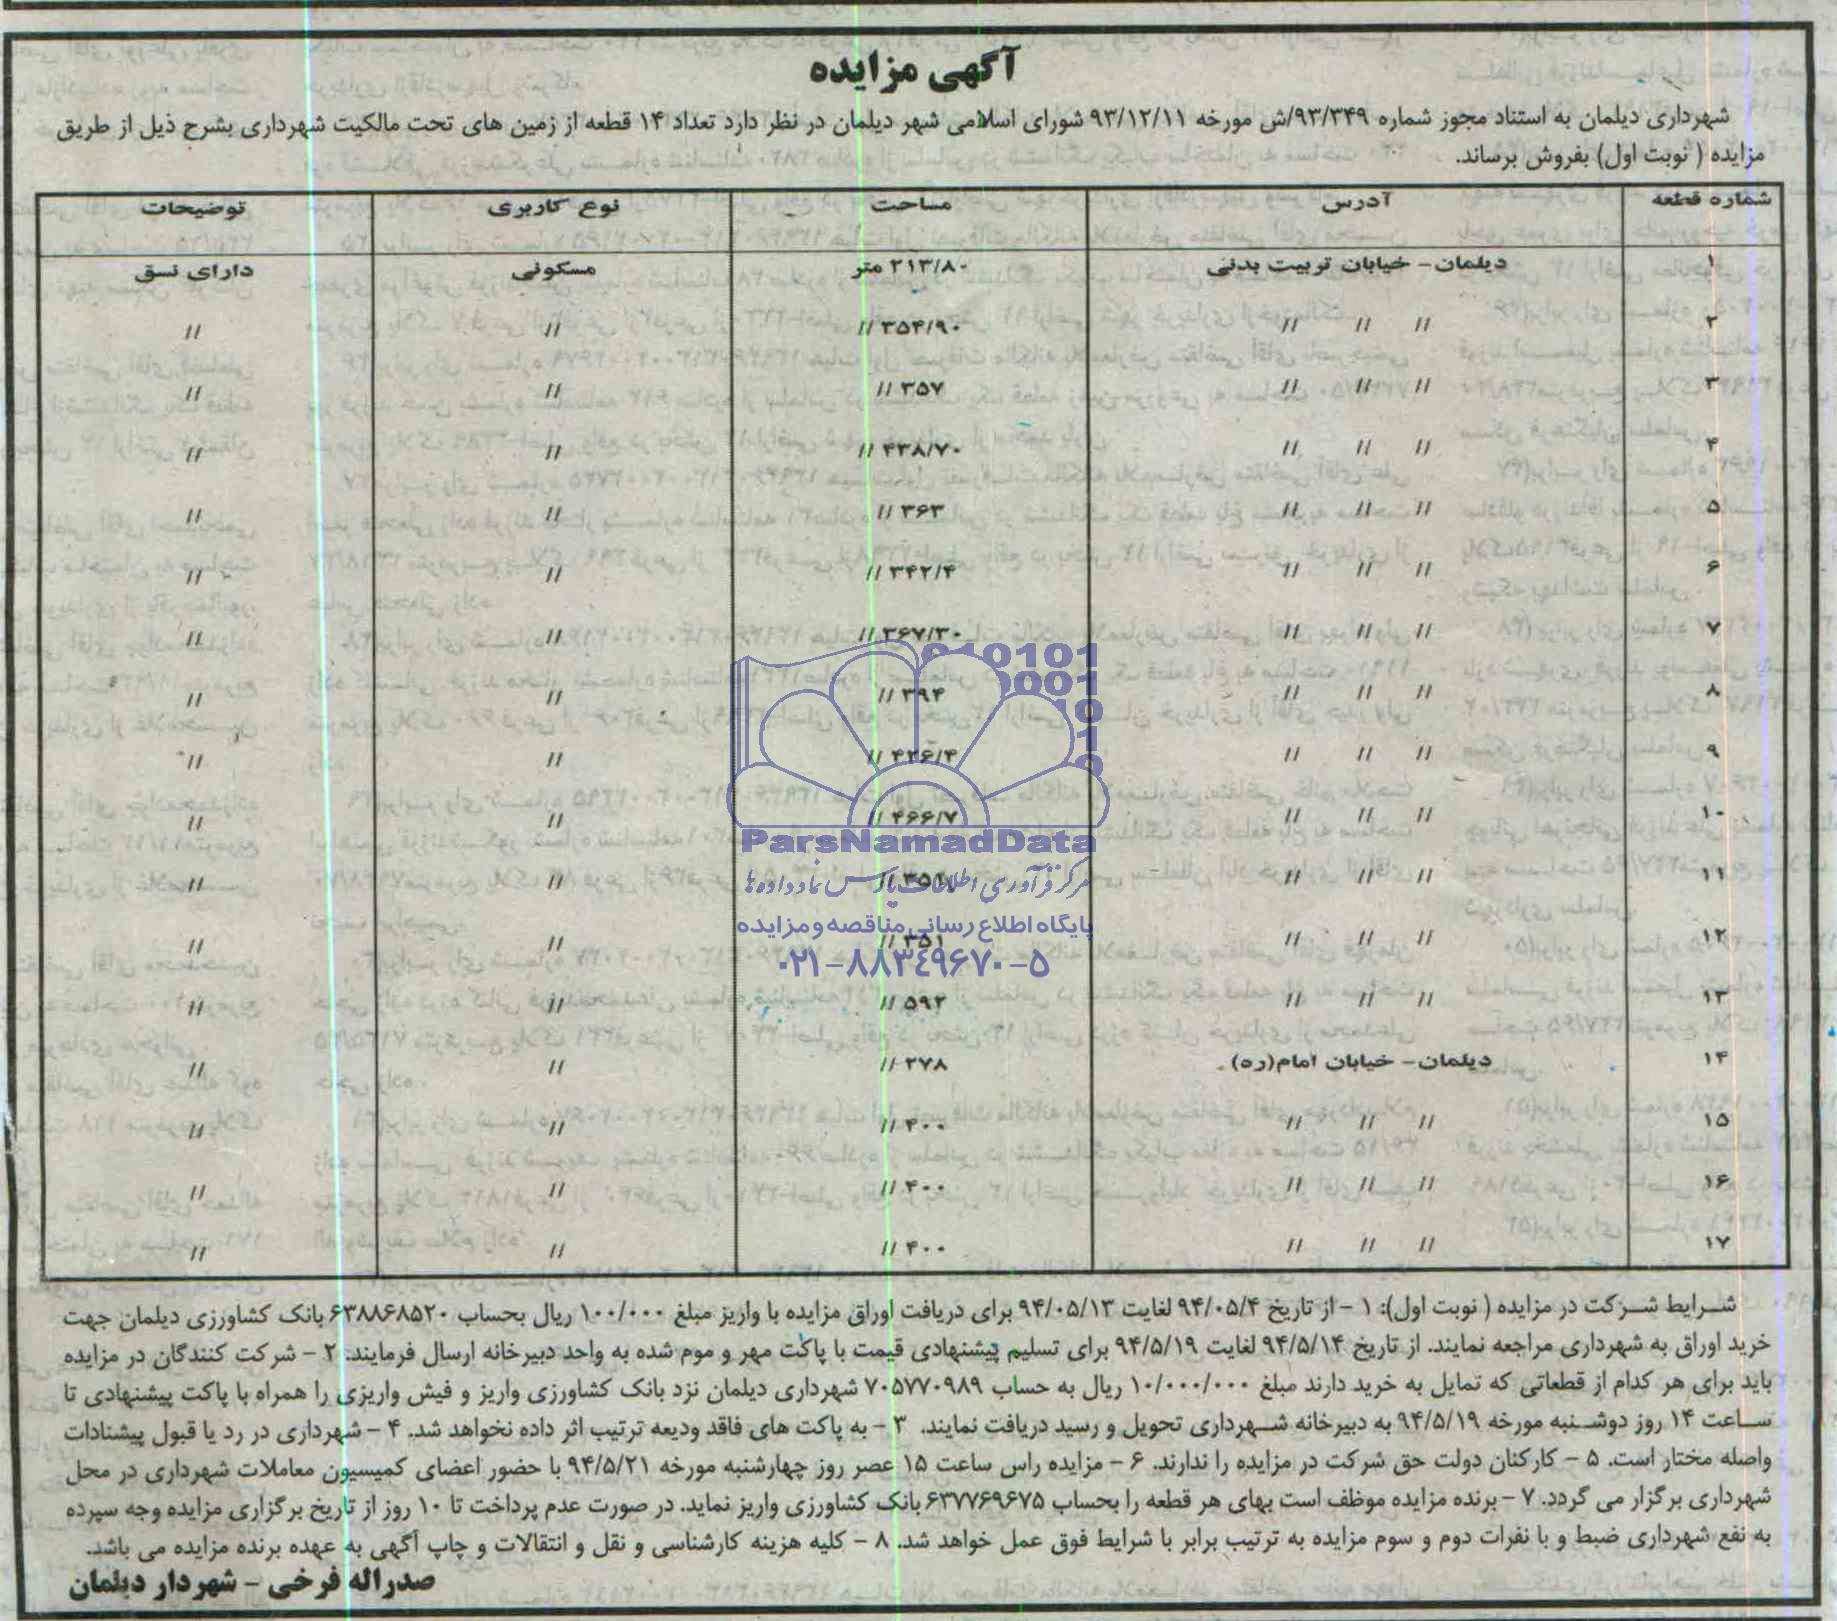 آگهی مزایده
شهرداری دیلمان به استناد مجوز شماره ۹۳/۳۴۹/ش مورخه ۹۳/۱۲/۱۱ شورای اسلامی شهر دیلمان در نظر دارد تعداد ۱۴ قطعه از زمین های تحت مالکیت شهرداری بشرح ذیل از طریق
مزایده ( نوبت اول) بفروش برساند.
شماره قطعه آدرس مساحت نوع کاربری توضیحات
۱ دیلمان- خیابان تربیت بدنی ۲۱۳/۸۰ متر مسکونی دارای نسق
۲ // // // ۳۵۴/۹۰ // // //
۳ // // // ۳۵۷ // // //
۴ // // // ۴۳۸/۷۰ // // //
۵ // // // ۳۶۳ // // //
۶ // // // ۳۴۲/۴ // // //
۷ // // // ۳۶۷/۳۰ // // //
۸ // // // ۳۹۴ // // //
۹ // // // ۴۲۶/۴ // // //
۱۰ // // // ۴۶۶/۷ // // //
۱۱ // // // ۳۵۱ // // //
۱۲ // // // ۳۵۱ // // //
۱۳ // // // ۵۹۲ // // //
۱۴ دیلمان- خیابان امام(ره) ۲۷۸ // // //
۱۵ // // // ۴۰۰ // // //
۱۶ // // // ۴۰۰ // // //
۱۷ // // // ۴۰۰ // // //
ParsNamadData
مرکز فرآوری اطلاعات پارس نماد داده ها
پایگاه اطلاع رسانی مناقصه و مزایده
۰۲۱-۸۸۳۴۹۶۷۰-۵
شرایط شرکت در مزایده ( نوبت اول): ۱ - از تاریخ ۹۴/۰۵/۴ لغایت ۹۴/۰۵/۱۳ برای دریافت اوراق مزایده با واریز مبلغ ۱۰۰/۰۰۰ ریال بحساب ۶۳۸۸۶۸۵۲۰ بانک کشاورزی دیلمان جهت
خرید اوراق به شهرداری مراجعه نمایند. از تاریخ ۹۴/۵/۱۴ لغایت ۹۴/۵/۱۹ برای تسلیم پیشنهادی قیمت با پاکت مهر و موم شده به واحد دبیرخانه ارسال فرمایند. ۲ - شرکت کنندگان در مزایده
باید برای هر کدام از قطعاتی که تمایل به خرید دارند مبلغ ۱۰/۰۰۰/۰۰۰ ریال به حساب ۷۰۵۷۷۰۹۸۹ شهرداری دیلمان نزد بانک کشاورزی واریز و فیش واریزی را همراه با پاکت پیشنهادی تا
ساعت ۱۴ روز دوشنبه مورخه ۹۴/۵/۱۹ به دبیرخانه شهرداری تحویل و رسید دریافت نمایند. ۳ - به پاکت های فاقد ودیعه ترتیب اثر داده نخواهد شد. ۴ - شهرداری در رد یا قبول پیشنادات
واصله مختار است. ۵ - کارکنان دولت حق شرکت در مزایده را ندارند. ۶ - مزایده راس ساعت ۱۵ عصر روز چهارشنبه مورخه ۹۴/۵/۲۱ با حضور اعضای کمیسیون معاملات شهرداری در محل
شهرداری برگزار می گردد. ۷ - برنده مزایده موظف است بهای هر قطعه را بحساب ۶۳۷۷۶۹۶۷۵ بانک کشاورزی واریز نماید. در صورت عدم پرداخت تا ۱۰ روز از تاریخ برگزاری مزایده وجه سپرده
به نفع شهرداری ضبط و با نفرات دوم و سوم مزایده به ترتیب برابر با شرایط فوق عمل خواهد شد. ۸ - کلیه هزینه کارشناسی و نقل و انتقالات و چاپ آگهی به عهده برنده مزایده می باشد.
صدراله فرخی - شهردار دیلمان